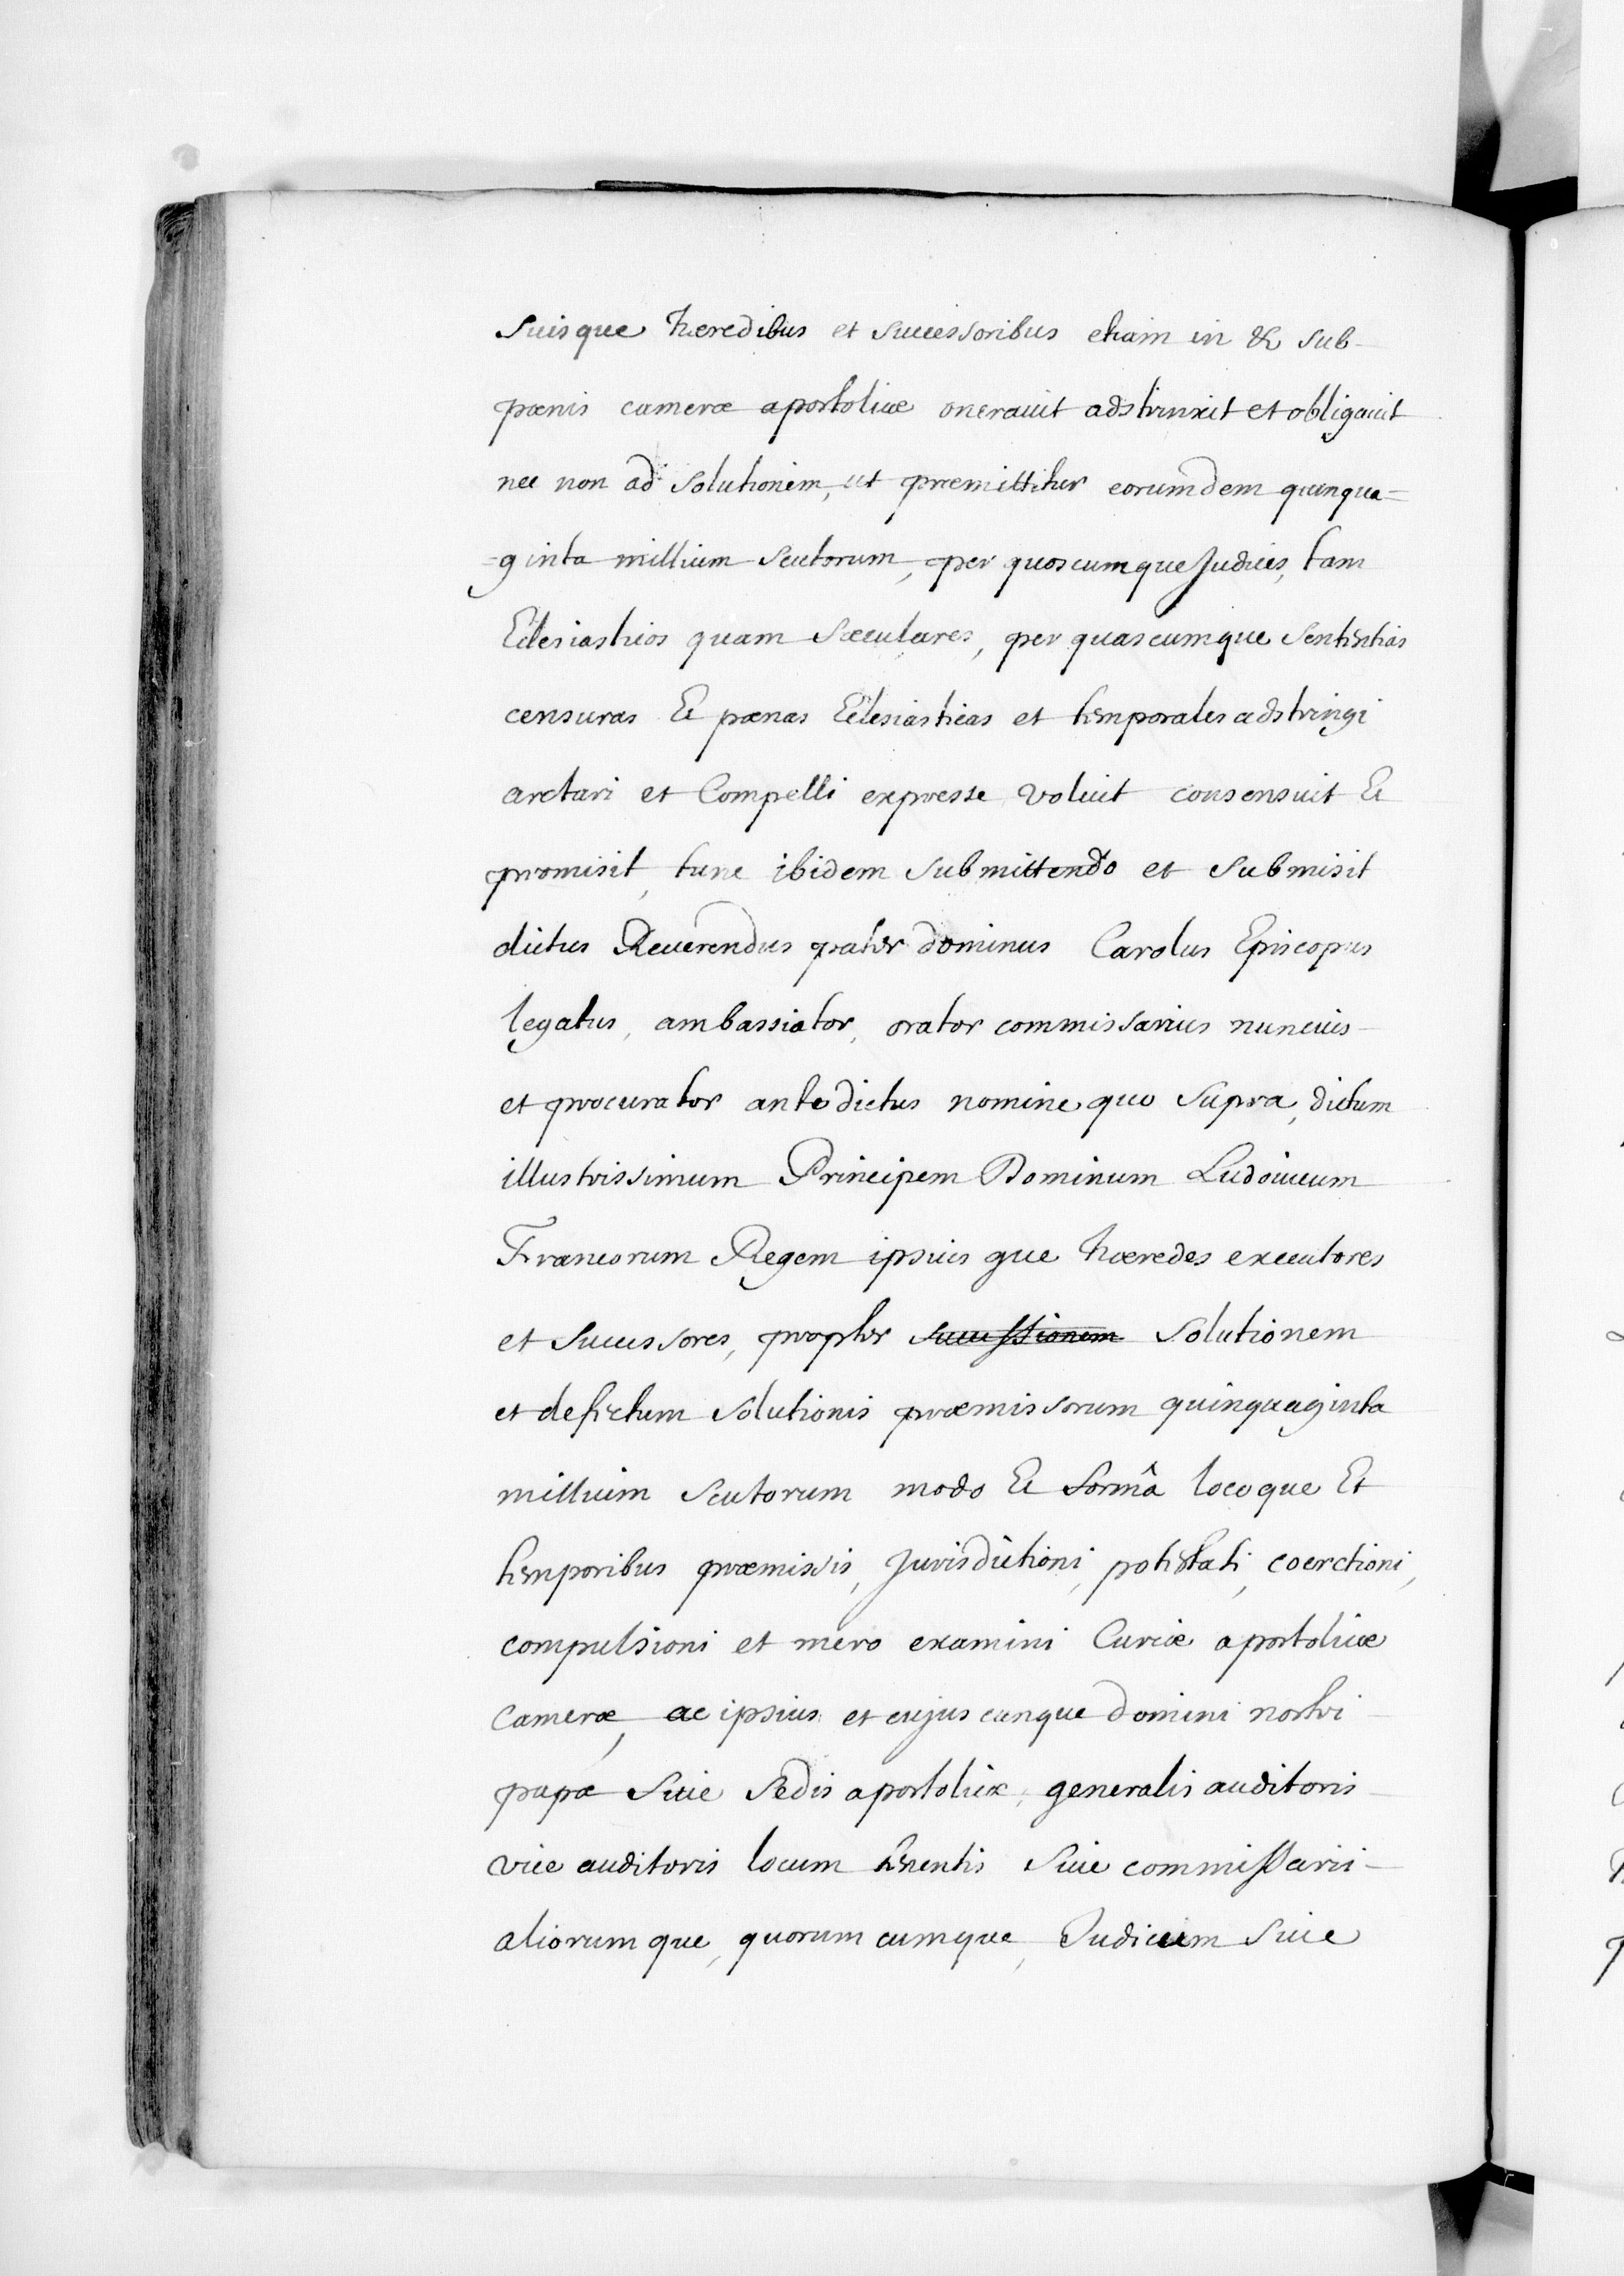 Suisque hæredibus et successoribus etiam in & sub-
pœnis cameræ apostolicæ onerauit adstrinxit et obligauit
nec non ad solutionem, ut præmittitur eorumdem quinqua=
=ginta millium scutorum, per quoscumque Judices, tam
Ecclesiasticos quam sæculares, per quascumque sententias
censuras Et pœnas Ecclesiasticas et temporales adstringi
arctari et Compelli expresse voluit consensuit Et
promisit, tunc ibidem submittendo et submisit
dictus Reuerendus pater dominus Carolus Episcopus
legatus, ambassiator, orator commissarius nuncius-
et procurator antedictus nomine quo supra, dictum
illustrissimum Principem Dominum Ludouicum
Francorum Regem ipsius que hæredes executores
et successores, propter successionem solutionem
et defectum solutionis præmissorum quinquaginta
millium scutorum modo Et formâ locoque Et
temporibus præmissis, Jurisdictioni, potestati, coerctioni,
compulsioni et mero examini Curiæ apostolicæ
Cameræ, ac ipsius et cujuscunque domini nostri
papæ siue sedis apostolicæ, generalis auditoris
vice auditoris locum tenentis siue commissarii-
aliorumque, quorumcumque, Judicum siue